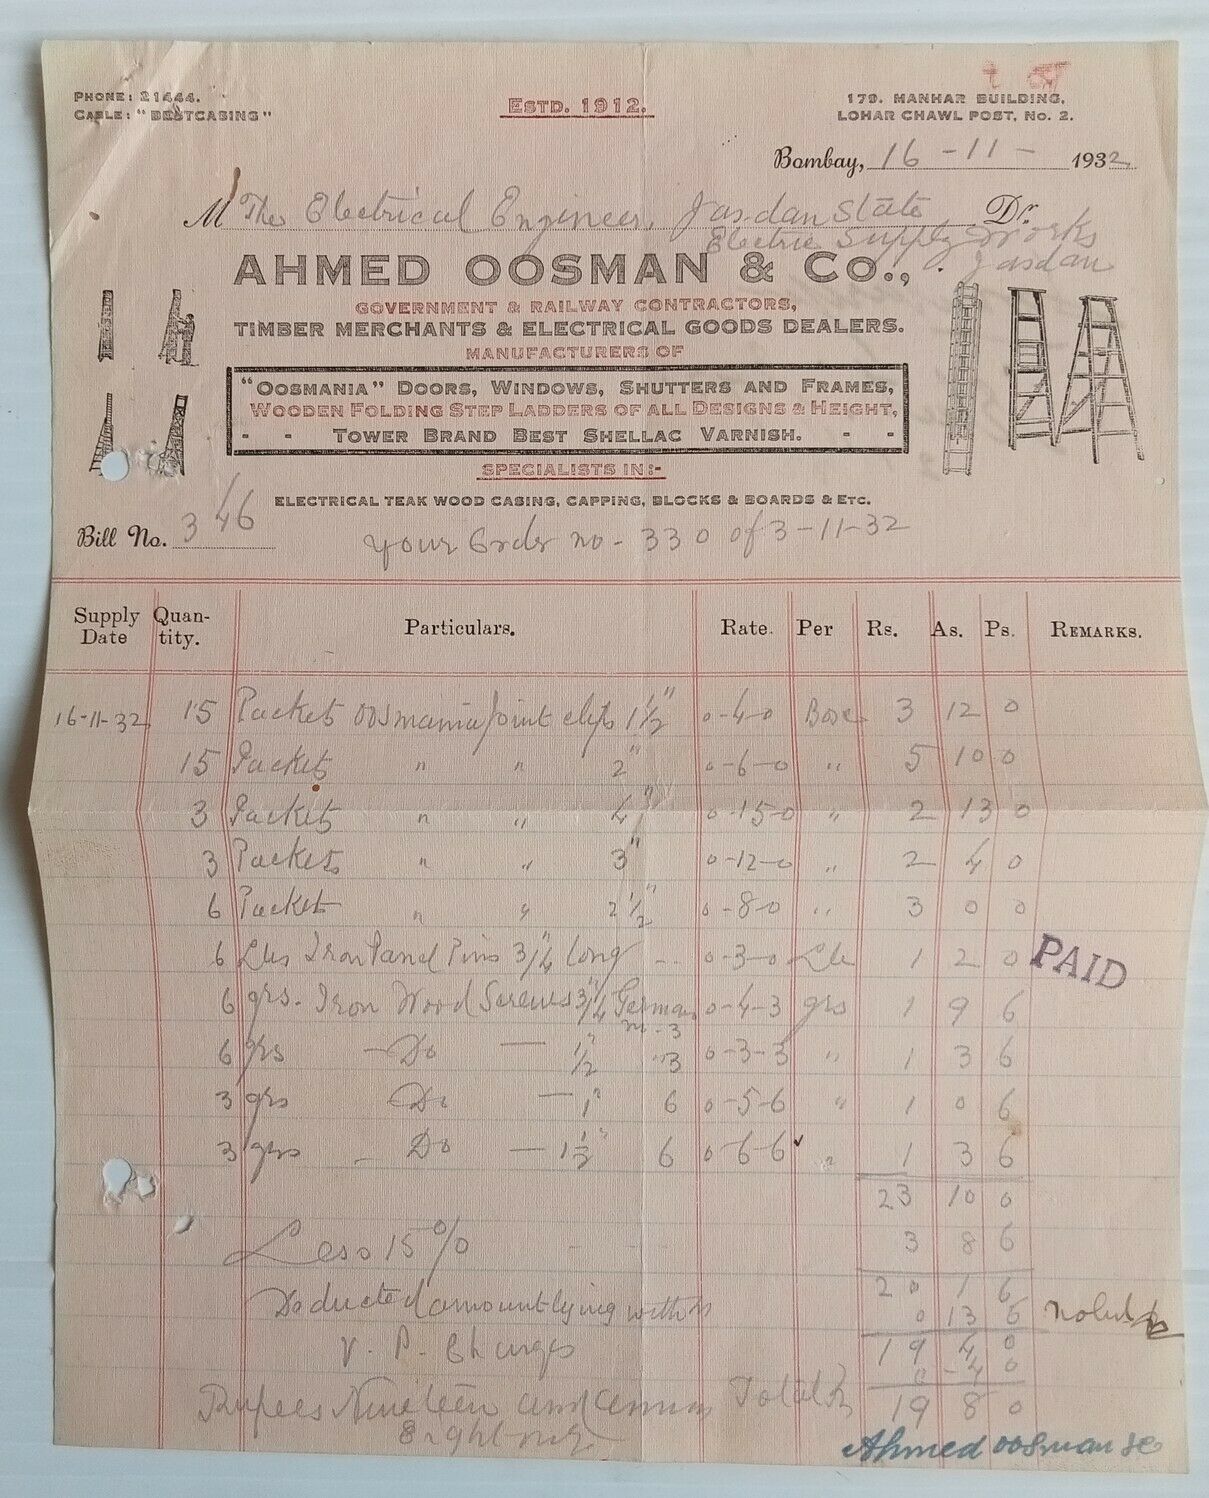 PHONE: 21444.
CABLE: "BESTCASING"
ESTD. 1912.
179. MANHAR BUILDING,
LOHAR CHAWL POST, No. 2.
Bombay, 16-11-1932
M The Electrical Engineer, Jasdan State Dr.
Electric Supply Works
Jasdan
AHMED OOSMAN & CO.,
GOVERNMENT & RAILWAY CONTRACTORS,
TIMBER MERCHANTS & ELECTRICAL GOODS DEALERS.
MANUFACTURERS OF
"OOSMANIA" DOORS, WINDOWS, SHUTTERS AND FRAMES,
WOODEN FOLDING STEP LADDERS OF ALL DESIGNS & HEIGHT,
- - TOWER BRAND BEST SHELLAC VARNISH. - -
SPECIALISTS IN:-
ELECTRICAL TEAK WOOD CASING, CAPPING, BLOCKS & BOARDS & ETC.
Bill No. 346
your Order no - 330 of 3-11-32
Supply Date Quantity. Particulars. Rate. Per Rs. As. Ps. REMARKS.
16-11-32 15 Packet oosmania joint clips 1½" 0-4-0 Box 3 12 0
15 Packets " " 2" 0-6-0 " 5 10 0
3 Packets " " 4" 0-15-0 " 2 13 0
3 Packets " " 3" 0-12-0 " 2 4 0
6 Packet " " 2½" 0-8-0 " 3 0 0
6 Lbs Iron Panel Pins 3/4" long 0-3-0 Lb 1 2 0
PAID
6 grs. Iron Wood Screws 3/4" German 0-4-3 grs 1 9 6
m-3
6 grs - Do - 1/2" "3 0-3-3 " 1 3 6
3 grs Do - 1" 6 0-5-6 " 1 0 6
3 grs - Do - 1½" 6 0-6-6 " 1 3 6
23 10 0
Less 15% 3 8 6
20 1 6
Deducted amount lying with us 0 13 6
19 4 0
V. P. Charges 0-4 0
Rupees Nineteen and annas Total Rs 19 8 0
Eight only
Ahmed oosman & Co